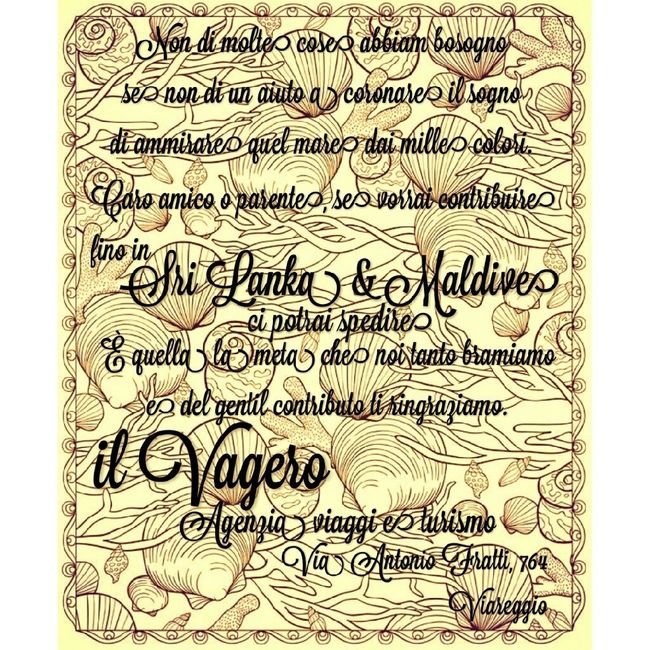 Non di molte cose abbiam bosogno
se non di un aiuto a coronare il sogno
di ammirare quel mare dai mille colori.
Caro amico o parente, se vorrai contribuire
fino in
Sri Lanka & Maldive
ci potrai spedire
È quella la meta che noi tanto bramiamo
e del gentil contributo ti ringraziamo.
il Vagero
Agenzia viaggi e turismo
Via Antonio Fratti, 764
Viareggio